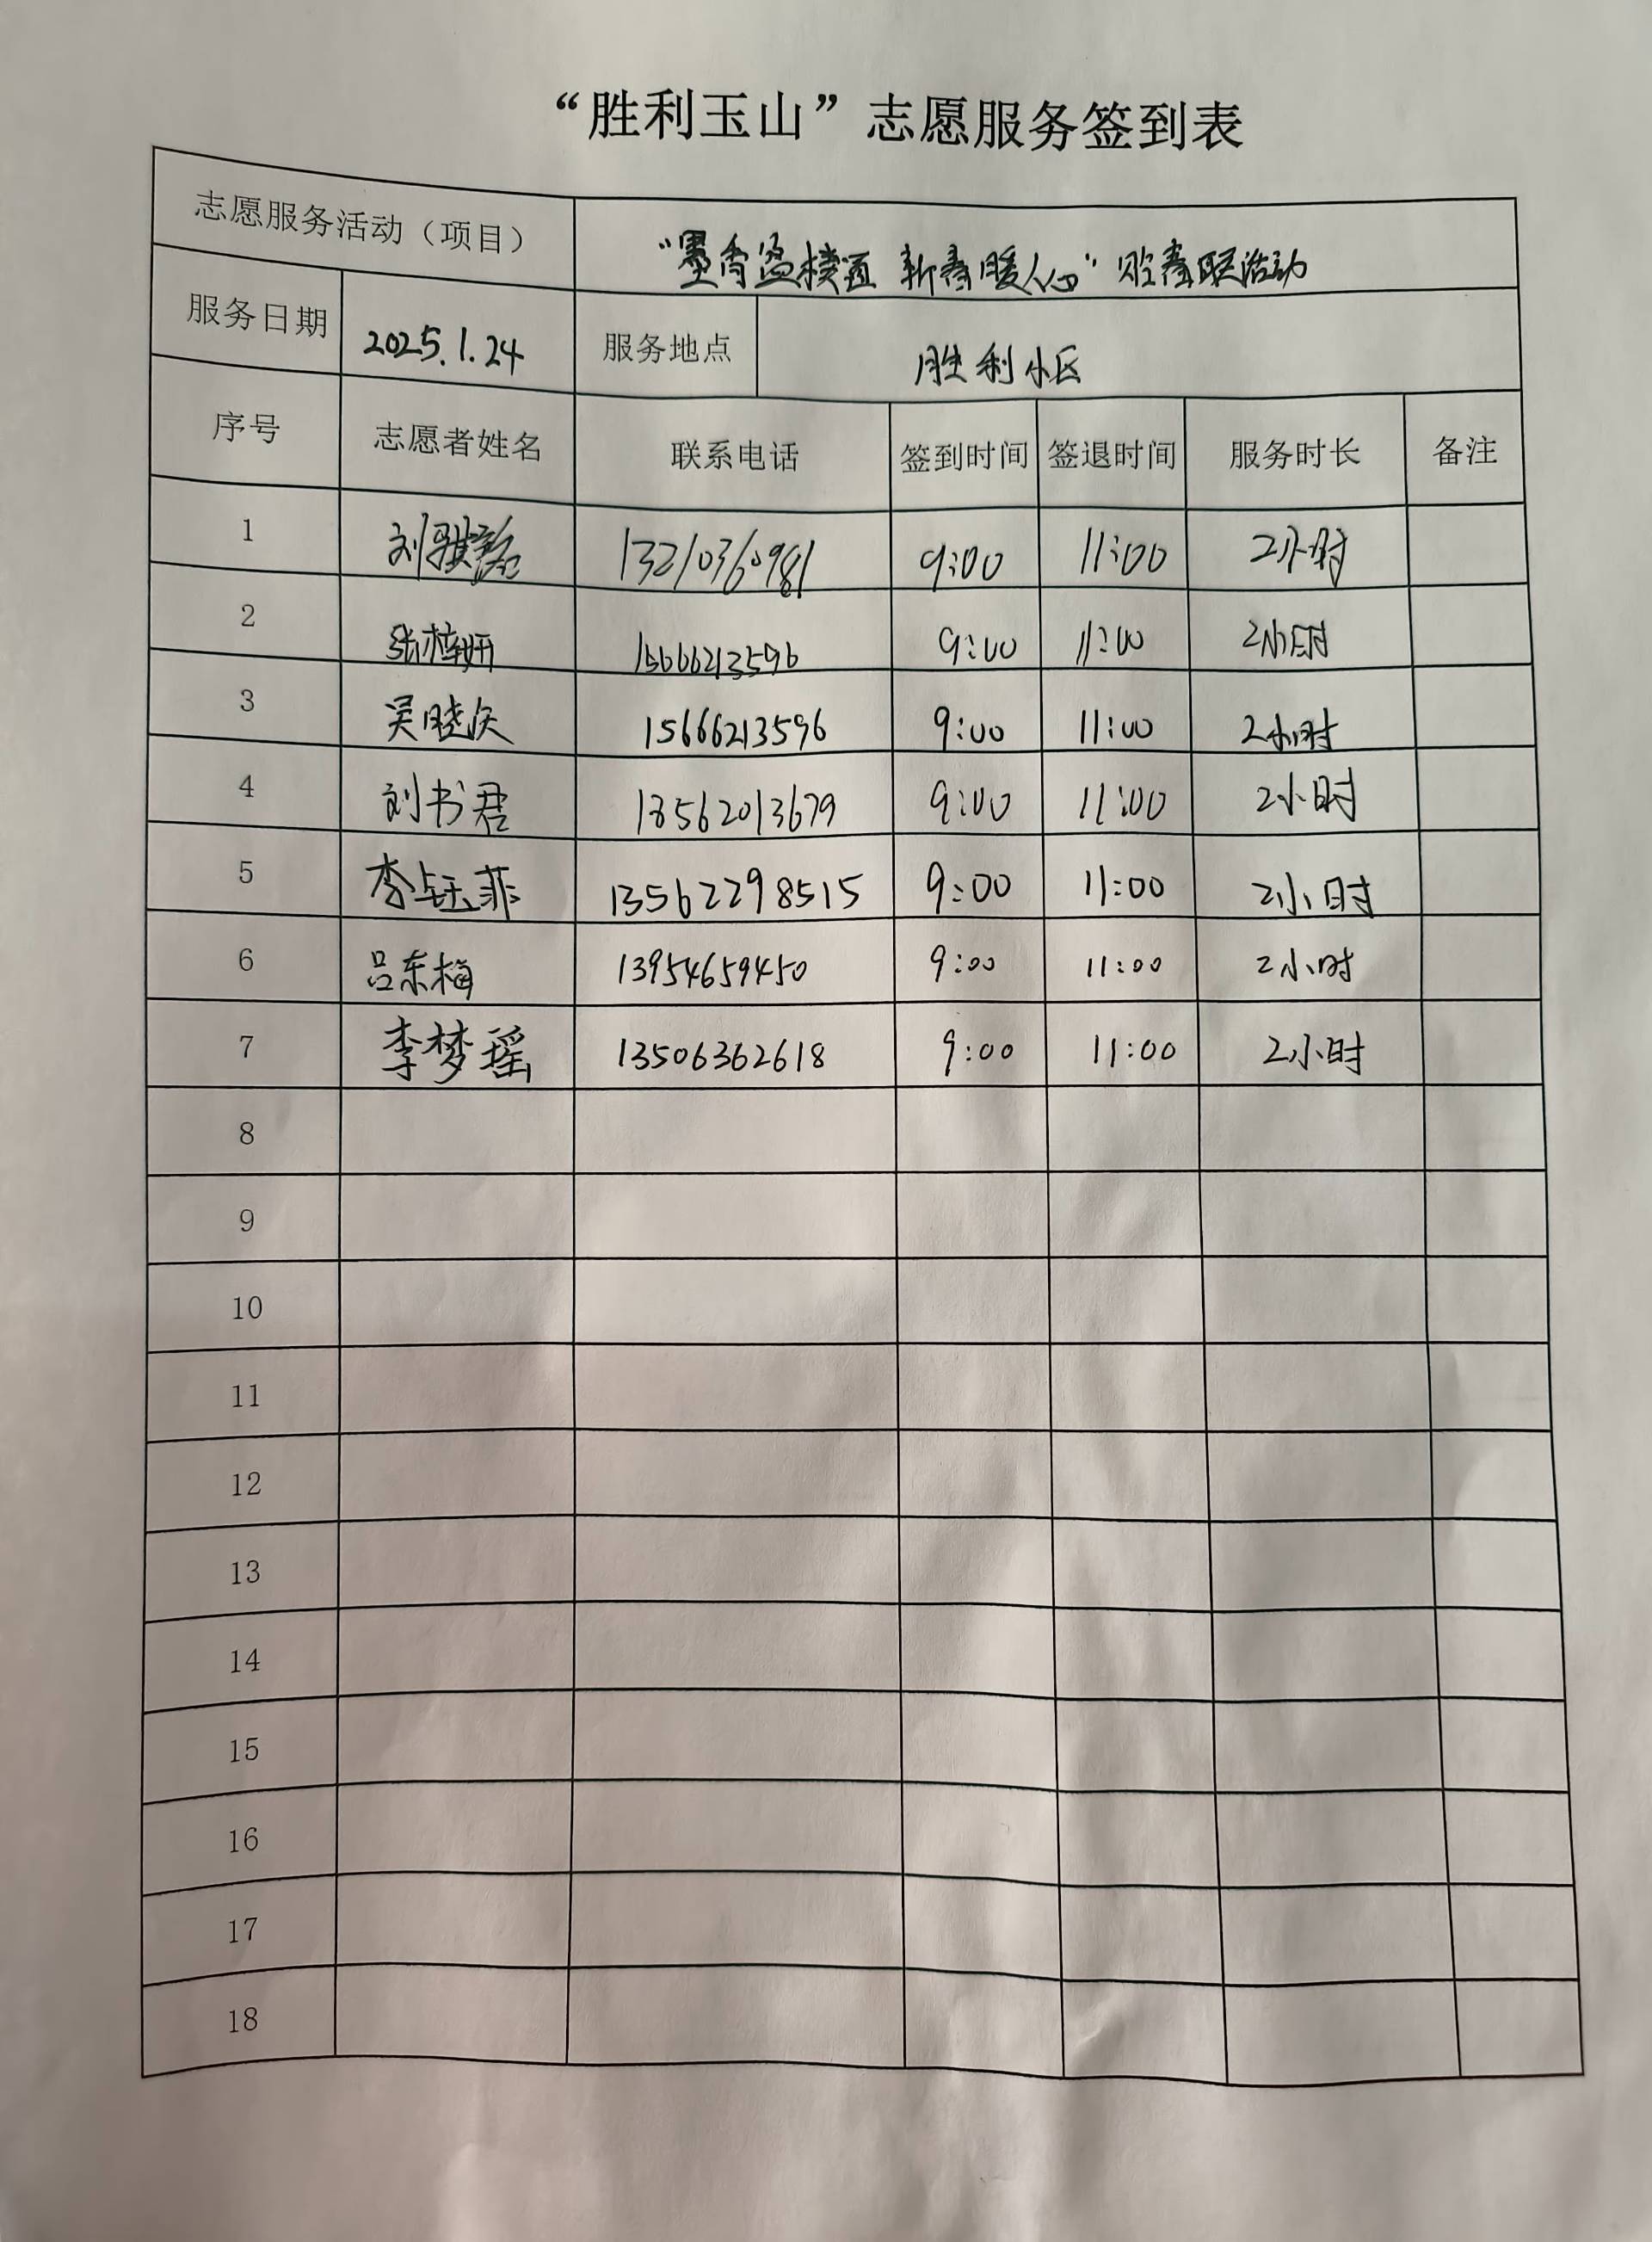 “胜利玉山”志愿服务签到表
志愿服务活动（项目） “墨香盈楼道 新春暖人心”贴春联活动
服务日期 2025.1.24 服务地点 胜利小区
序号 志愿者姓名 联系电话 签到时间 签退时间 服务时长 备注
1 刘骐 13210360981 9:00 11:00 2小时
2 张梓妍 15666213596 9:00 11:00 2小时
3 吴晓庆 15666213596 9:00 11:00 2小时
4 刘书君 18562013679 9:00 11:00 2小时
5 李钰菲 13562298515 9:00 11:00 2小时
6 吕东梅 13954659450 9:00 11:00 2小时
7 李梦瑶 13506362618 9:00 11:00 2小时
8
9
10
11
12
13
14
15
16
17
18